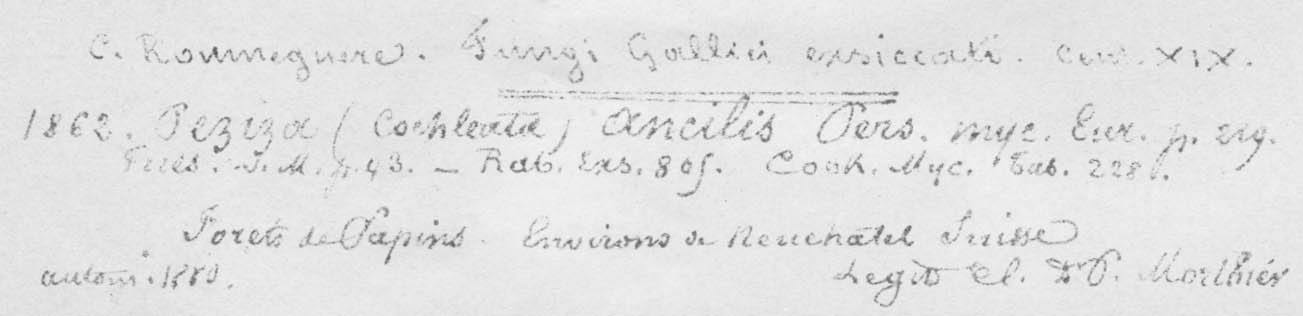 C. Roumeguere. Fungi Gallici exsiccati. Cent. XIX.
1862. Peziza (Cochleata) ancilis Pers. myc. Eur. p. 219.
Fuck. S. M. p. 43. — Rab. Exs. 805. Cook. Myc. Tab. 228.
Forets de Sapins. Environs de Neuchatel Suisse
autom. 1880.
Legit Cl. Dr P. Morthier